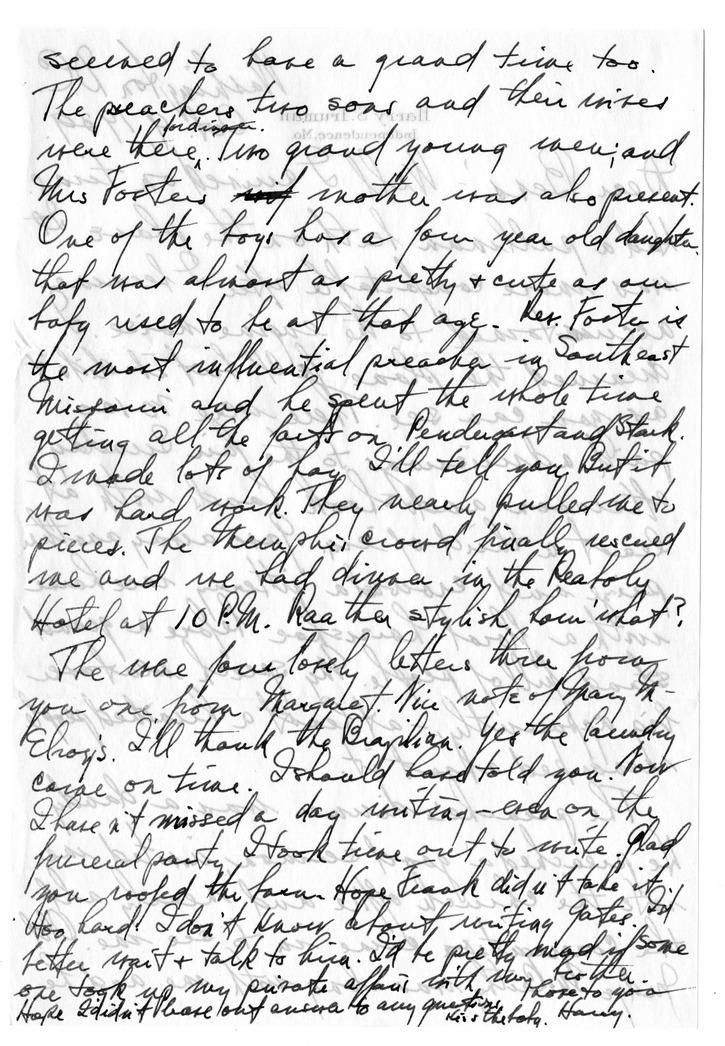 seemed to have a grand time too.
The preachers two sons and their wives
were there, for dinner. Two grand young men; and
Mrs Fosters mother was also present.
One of the boys has a four year old daughter
that was almost as pretty + cute as our
baby used to be at that age. Rev. Foster is
the most influential preacher in Southeast
Missouri and he spent the whole time
getting all the facts on Pendergast and Stark.
I made lots of hay I'll tell you But it
was hard work. They nearly pulled me to
pieces. The Memphis crowd finally rescued
me and we had dinner in the Peabody
Hotel at 10 P.M. Raather stylish hour what?
The were four lovely letters three from
you one from Margaret. Nice note of Mary M-
Elroy's. I'll thank the Brazilian. Yes the laundry
came on time. I should have told you. Now
I haven't missed a day writing - even on the
funeral party I took time out to write. Glad
you roofed the barn. Hope Frank didn't take it
too hard. I don't know about writing Gates. I'd
better wait + talk to him. I'd be pretty mad if some
one took up my private affairs with my brother.
Hope I didn't leave out answer to any questions. Love to you
Kiss the baby. Harry.
Harry S. Truman
Independence, Mo.